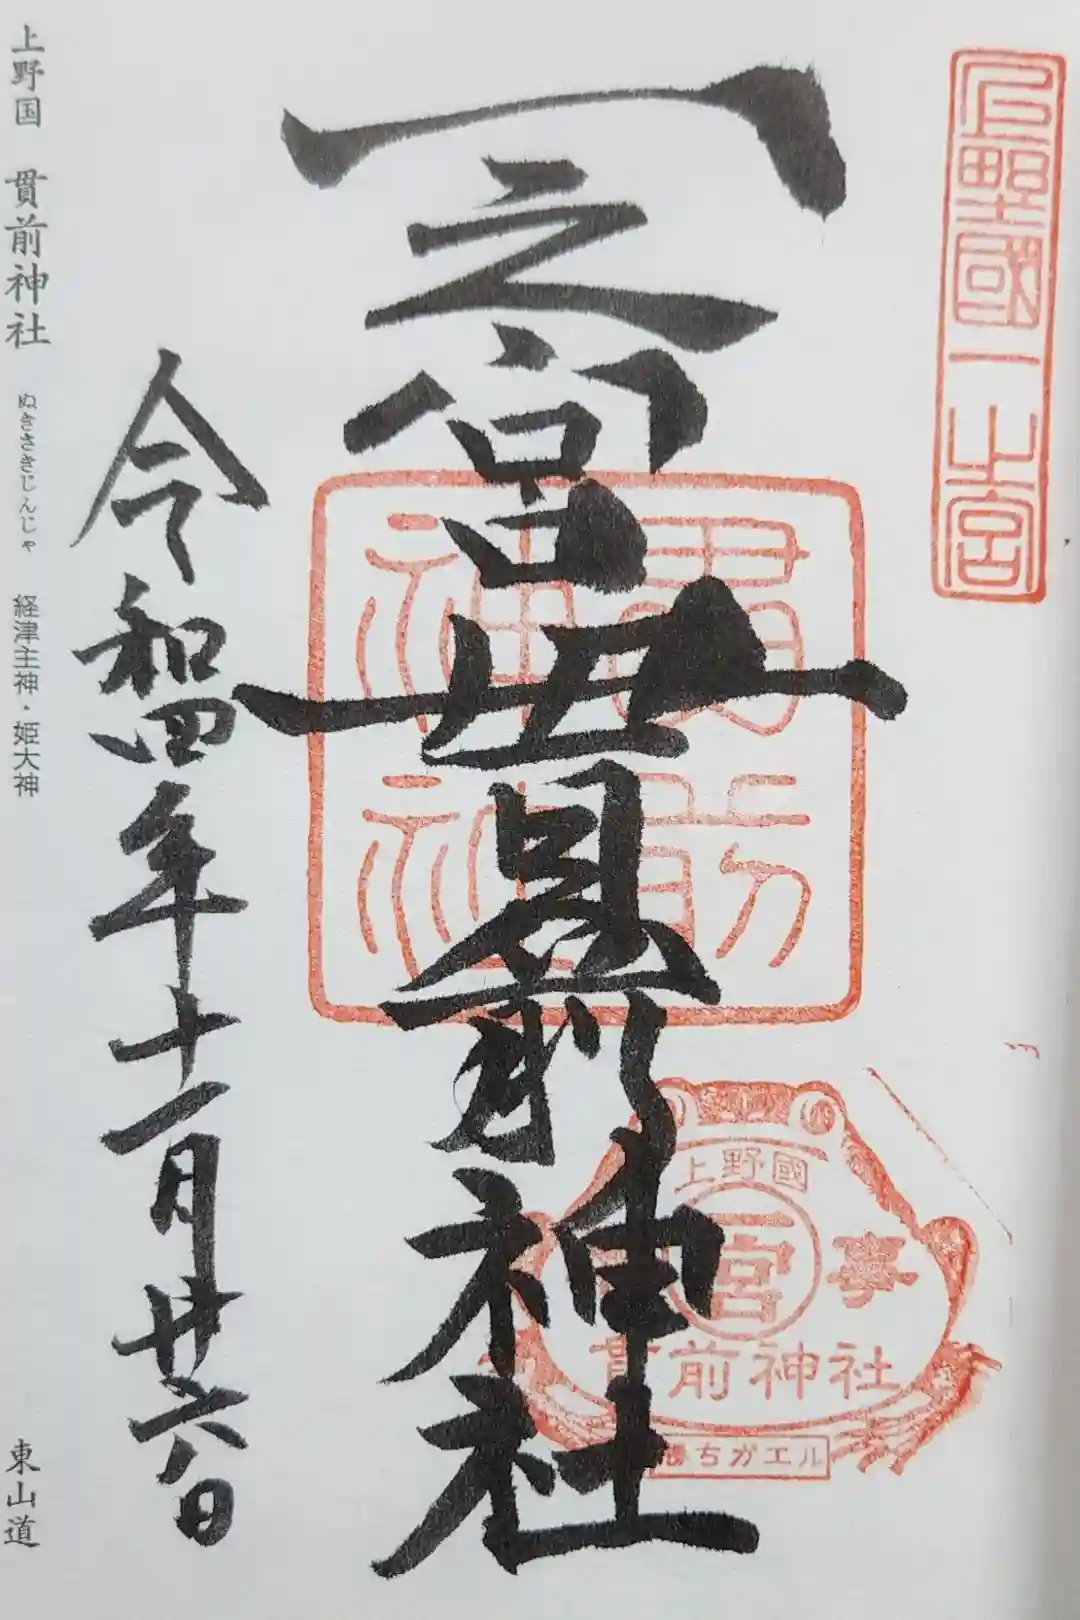 上野國一之宮
一之宮貫前神社
貫前
神社
上野國
一宮
貫前神社
勝ちガエル
令和四年十一月廿六日
上野国 貫前神社 ぬきさきじんじゃ 経津主神・姫大神
東山道